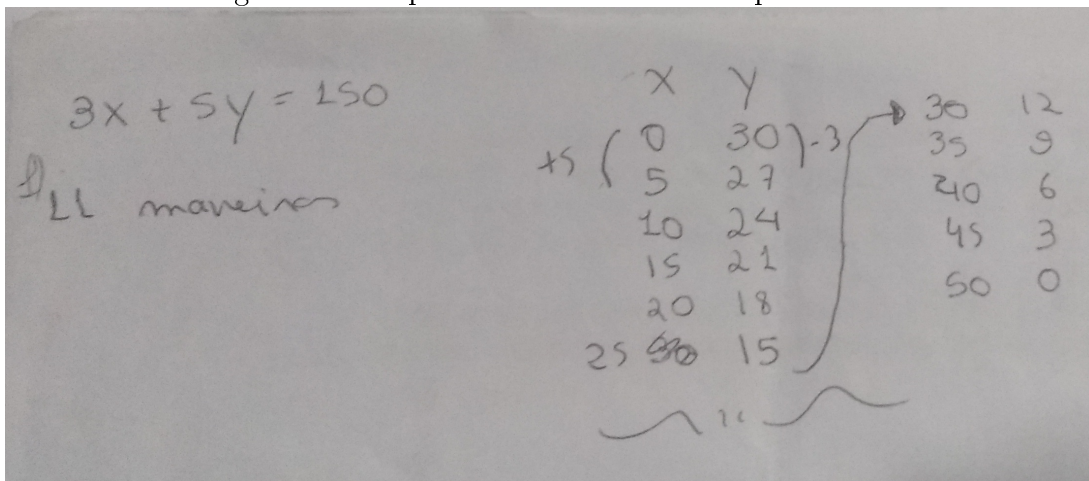 3x + 5y = 150
11 maneiras
x y
+5 ( 0 30 ) -3
5 27
10 24
15 21
20 18
25 15
30 12
35 9
40 6
45 3
50 0